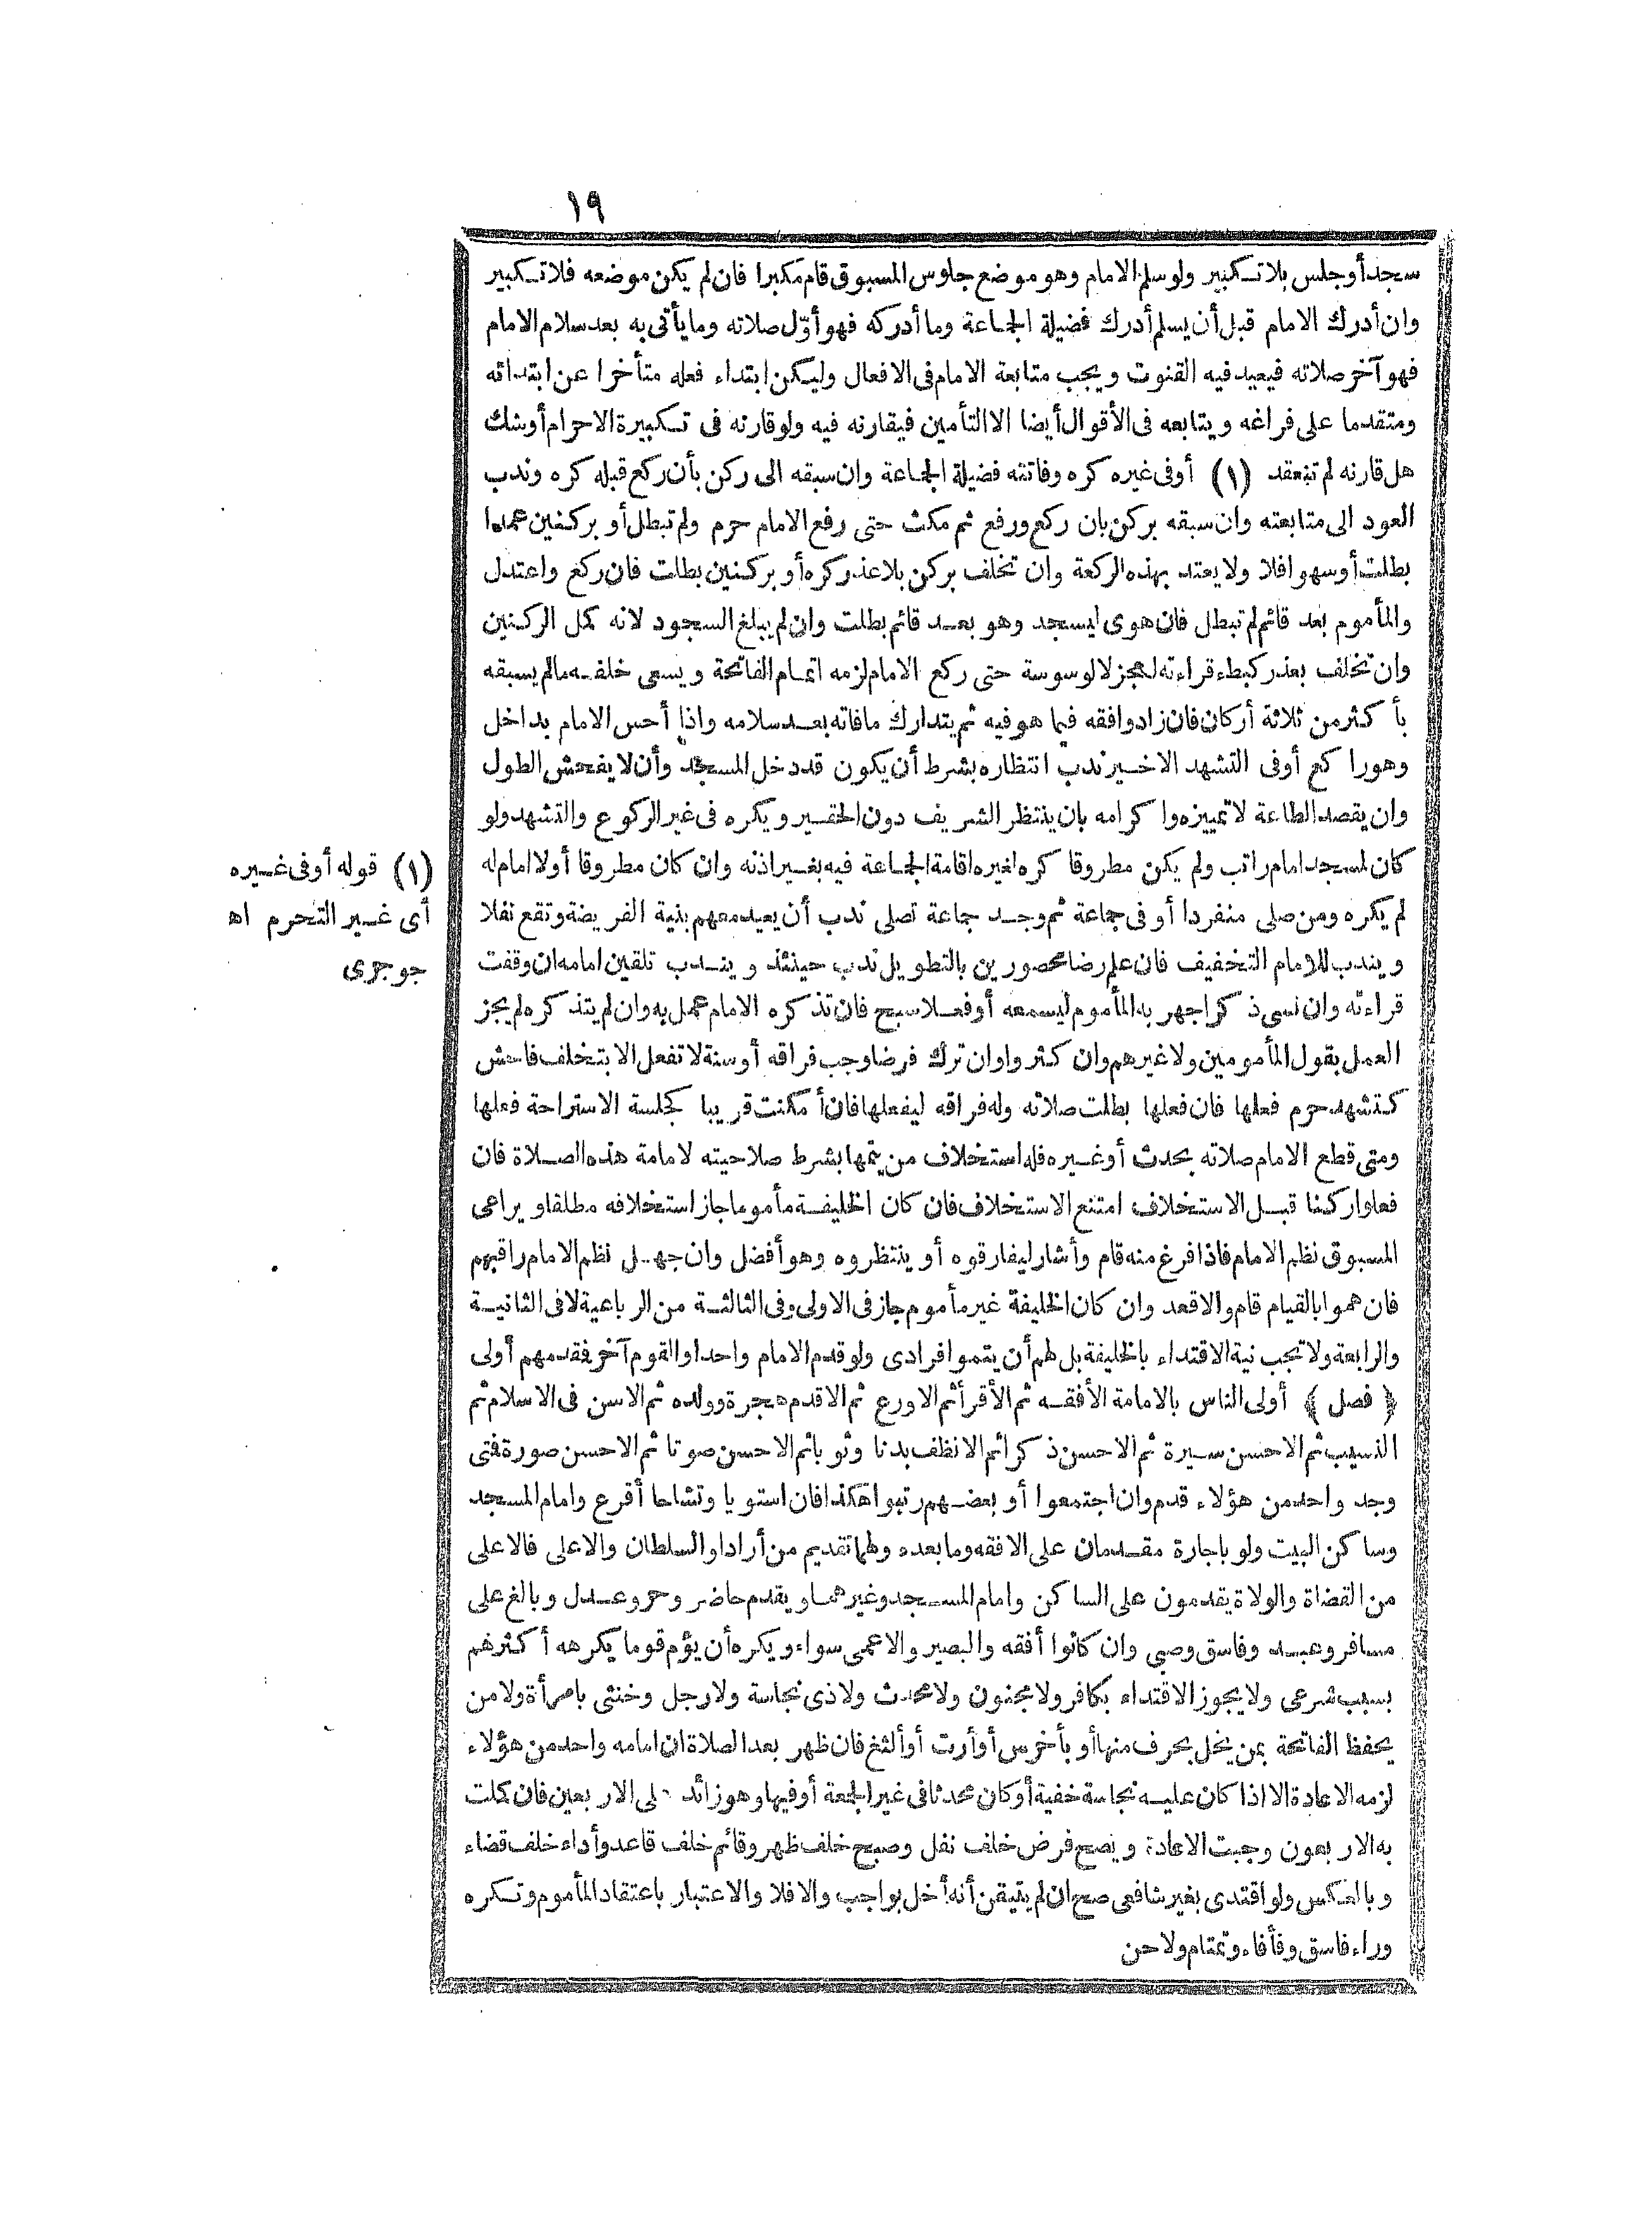 ١٩
سجد أو جلس بلا تكبير ولو سلم الامام وهو موضع جلوس المسبوق قام مكبرا فان لم يكن موضعه فلا تكبير
وان أدرك الامام قبل أن يسلم أدرك فضيلة الجماعة وما أدركه فهو أوّل صلاته وما يأتى به بعد سلام الامام
فهو آخر صلاته فيعيد فيه القنوت ويجب متابعة الامام فى الافعال وليكن ابتداء فعله متأخرا عن ابتدائه
ومتقدما على فراغه ويتابعه فى الأقوال أيضا الا التأمين فيقارنه فيه ولو قارنه فى تكبيرة الاحرام أو شك
هل قارنه لم تنعقد (١) أو فى غيره كره وفاتته فضيلة الجماعة وان سبقه الى ركن بأن ركع قبله كره وندب
العود الى متابعته وان سبقه بركن بان ركع ورفع ثم مكث حتى رفع الامام حرم ولم تبطل أو بركنين عمدا
بطلت أو سهوا فلا ولا يعتد بهذه الركعة وان تخلف بركن بلا عذر كره أو بركنين بطلت فان ركع واعتدل
والمأموم بعد قائم لم تبطل فان هوى ليسجد وهو بعد قائم بطلت وان لم يبلغ السجود لانه كمل الركنين
وان تخلف بعذر كبطء قراءته لعجز لا لوسوسة حتى ركع الامام لزمه اتمام الفاتحة ويسعى خلفه مالم يسبقه
بأكثر من ثلاثة أركان فان زاد وافقه فيما هو فيه ثم يتدارك ما فاته بعد سلامه واذا أحس الامام بداخل
وهو راكع أو فى التشهد الاخير ندب انتظاره بشرط أن يكون قد دخل المسجد وأن لا يفحش الطول
وان يقصد الطاعة لا تمييزه واكرامه بان ينتظر الشريف دون الحقير ويكره فى غير الركوع والتشهد ولو
كان لمسجد امام راتب ولم يكن مطروقا كره لغيره اقامة الجماعة فيه بغير اذنه وان كان مطروقا أو لا امام له
لم يكره ومن صلى منفردا أو فى جماعة ثم وجد جماعة تصلى ندب أن يعيد معهم بنية الفريضة وتقع نفلا
ويندب للامام التخفيف فان علم رضا محصورين بالتطويل ندب حينئذ ويندب تلقين امامه ان وقفت
قراءته وان نسى ذكرا جهر به المأموم ليسمعه أو فعلا سبح فان تذكره الامام عمل به وان لم يتذكره لم يجز
العمل بقول المأمومين ولا غيرهم وان كثروا وان ترك فرضا وجب فراقه أو سنة لا تفعل الا بتخلف فاحش
كتشهد حرم فعلها فان فعلها بطلت صلاته وله فراقه ليفعلها فان أمكنت قريبا كجلسة الاستراحة فعلها
ومتى قطع الامام صلاته بحدث أو غيره فله استخلاف من يتمها بشرط صلاحيته لامامة هذه الصلاة فان
فعلوا ركنا قبل الاستخلاف امتنع الاستخلاف فان كان الخليفة مأموما جاز استخلافه مطلقا ويراعى
المسبوق نظم الامام فاذا فرغ منه قام وأشار ليفارقوه أو ينتظروه وهو أفضل وان جهل نظم الامام راقبهم
فان هموا بالقيام قام والا قعد وان كان الخليفة غير مأموم جاز فى الاولى وفى الثالثة من الرباعية لا فى الثانية
والرابعة ولا تجب نية الاقتداء بالخليفة بل لهم أن يتموا فرادى ولو قدم الامام واحدا والقوم آخر فقدمهم أولى
﴿ فصل ﴾ أولى الناس بالامامة الأفقه ثم الأقرأ ثم الاورع ثم الاقدم هجرة وولده ثم الاسن فى الاسلام ثم
النسيب ثم الاحسن سيرة ثم الاحسن ذكرا ثم الانظف بدنا وثوبا ثم الاحسن صوتا ثم الاحسن صورة فمتى
وجد واحد من هؤلاء قدم وان اجتمعوا أو بعضهم رتبوا هكذا فان استويا وتشاحا أقرع وامام المسجد
وساكن البيت ولو باجارة مقدمان على الافقه وما بعده ولهما تقديم من أرادا والسلطان والاعلى فالاعلى
من القضاة والولاة يقدمون على الساكن وامام المسجد وغيرهما ويقدم حاضر وحر وعدل وبالغ على
مسافر وعبد وفاسق وصبى وان كانوا أفقه والبصير والاعمى سواء ويكره أن يؤم قوما يكرهه أكثرهم
بسبب شرعى ولا يجوز الاقتداء بكافر ولا مجنون ولا محدث ولا ذى نجاسة ولا رجل وخنثى بامرأة ولا من
يحفظ الفاتحة بمن يخل بحرف منها أو بأخرس أو أرت أو ألثغ فان ظهر بعد الصلاة ان امامه واحد من هؤلاء
لزمه الاعادة الا اذا كان عليه نجاسة خفية أو كان محدثا فى غير الجمعة أو فيها وهو زائد على الاربعين فان كملت
به الاربعون وجبت الاعادة ويصح فرض خلف نفل وصبح خلف ظهر وقائم خلف قاعد وأداء خلف قضاء
وبالعكس ولو اقتدى بغير شافعى صح ان لم يتيقن أنه أخل بواجب والا فلا والاعتبار باعتقاد المأموم وتكره
وراء فاسق وفأفاء وتمتام ولاحن
(١) قوله أو فى غيره
أى غير التحرم اه
جوجرى